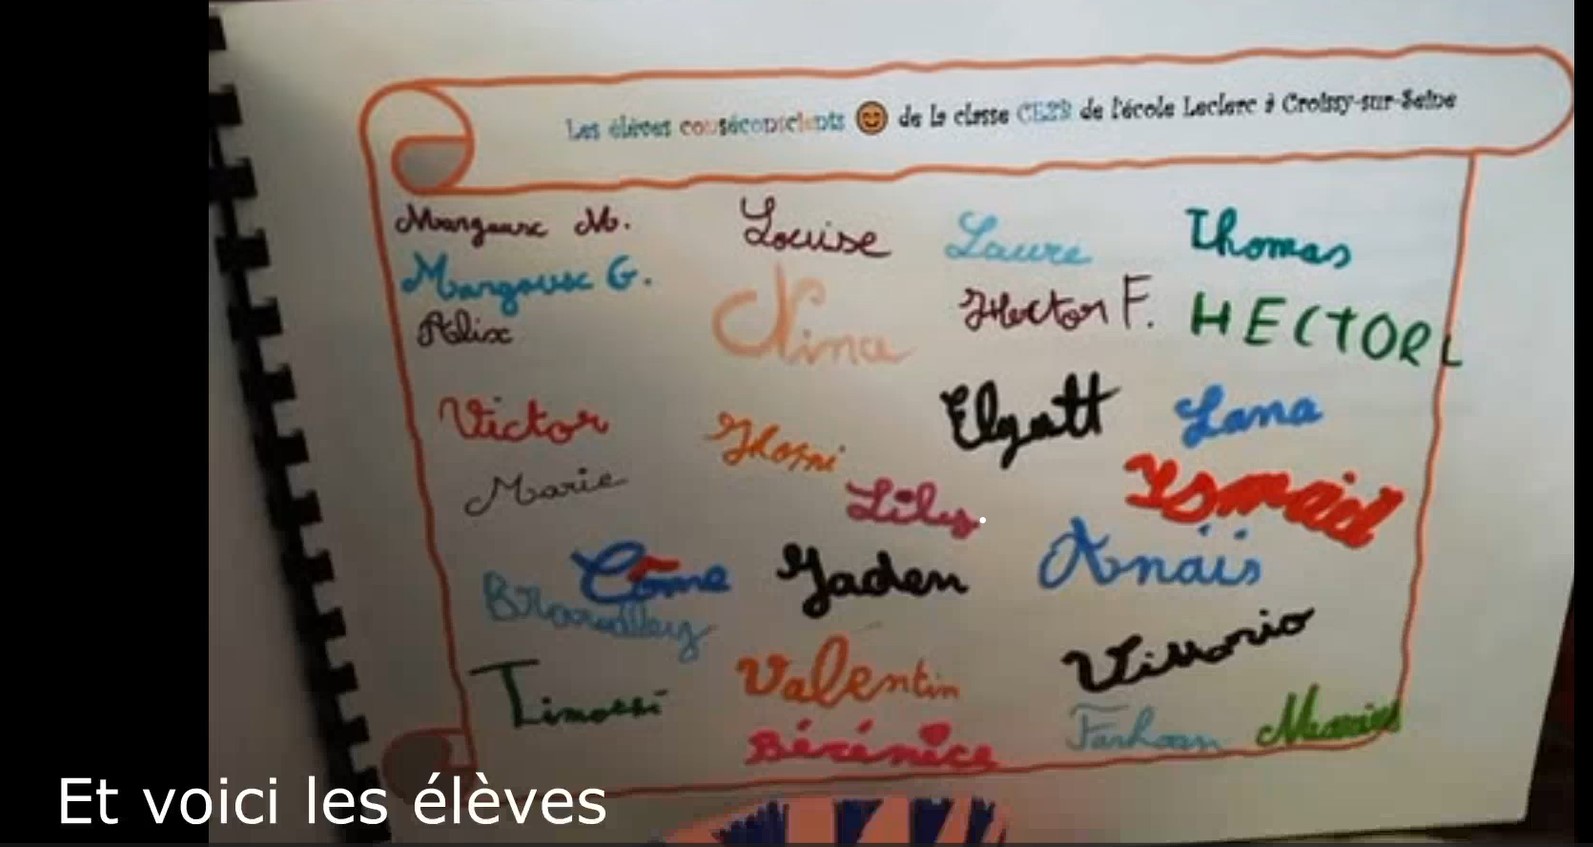 Les élèves couséconscients de la classe CE2B de l'école Leclerc à Croissy-sur-Seine
Margaux M. Louise Laure Thomas
Margaux G. Nina Hector F. HECTOR L
Alix
Victor Elyott Lana
Marie Lily Ismaïl
Côme Jaden Anaïs
Valentin Vittorio
Bérénice Farhaan
Et voici les élèves